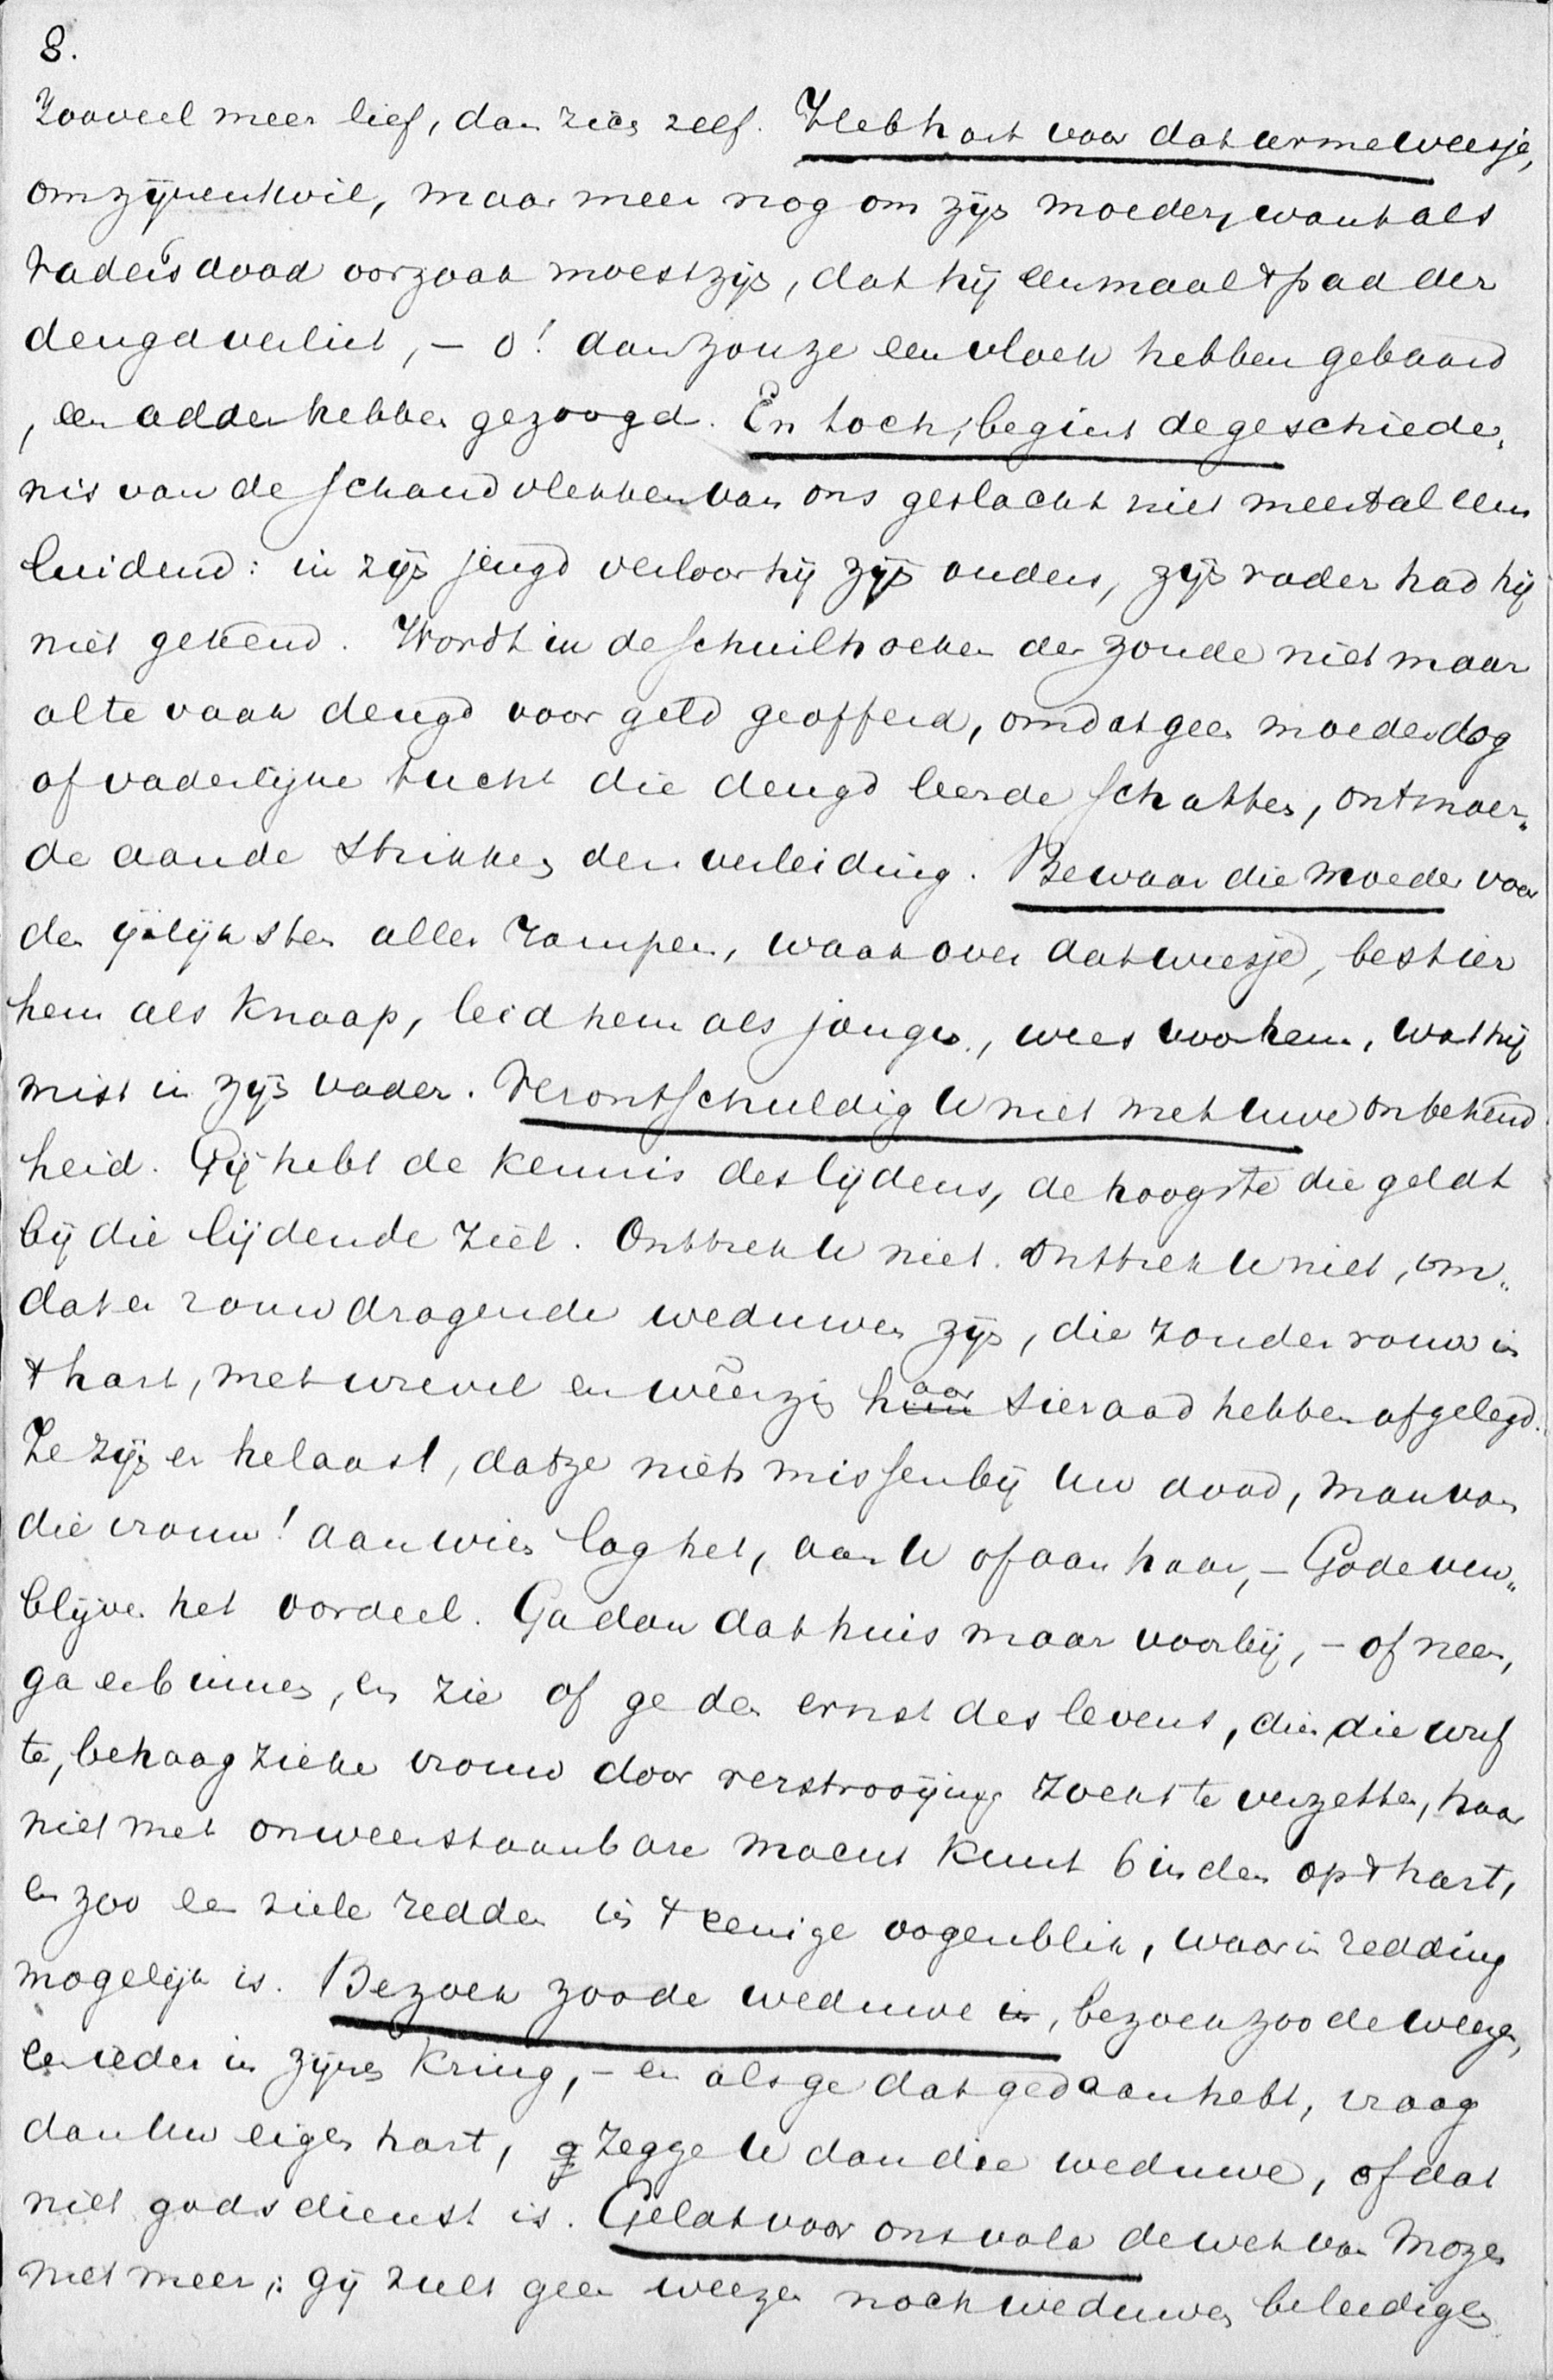 8.
zooveel meer lief, dan zich zelf. Heb hart voor dat arme weesje,
om zijnentwil, maar meer nog om zijn moeder, want als
vaders dood oorzaak moest zijn, dat hij eenmaal 't pad der
deugd verliet, – o! dan zou ze een vloek hebben gebaard
, een adder hebben gezoogd. En toch, begint de geschiede„
nis van de schandvlekken van ons geslacht niet meestal een„
luidend: in zijn jeugd verloor hij zijn ouders, zijn vader had hij
niet gekend. Wordt in de schuilhoeken der zonde niet maar
al te vaak deugd voor geld geofferd, omdat geen moederoog
of vaderlijke tucht die deugd leerde schatten, ontvoer„
de aan de strikken der verleiding. Bewaar die moeder voor
den ijslijksten aller rampen, waak over dat weesje, bestier
hem als knaap, leid hem als jongen, wees voor hem, wat hij
mist in zijn vader. Verontschuldig U niet met Uwe onbekend
heid. Gij hebt de kennis des lijdens, de hoogste die geldt
bij die lijdende ziel. Onttrek U niet. Onttrek U niet, om„
dat er rouwdragende weduwen zijn, die zonder rouw in
't hart, met wrevel en wêerzin haar sieraad hebben afgelegd.
Ze zijn er helaas!, dat ze niets missen bij Uw dood, man van
die vrouw! aan wien lag het, aan U of aan haar, – Gode ver„
blijve het oordeel. Ga dan dat huis maar voorbij, – of neen,
ga er binnen, en zie of ge den ernst des levens, dien die wuf
te, behaagzieke vrouw door verstrooijing zoekt te verzetten, haar
niet met onweerstaanbare macht kunt binden op 't hart,
en zoo een ziele redden in 't eenige oogenblik, waarin redding
mogelijk is. Bezoek zoo de weduwe in, bezoek zoo de weezen,
en ieder in zijnen kring, – en als ge dat gedaan hebt, vraag
dan Uw eigen hart, g zegge U dan die weduwe, of dat
niet godsdienst is. Geldt voor ons volk de wet van Mozes
niet meer,: gij zult geen weezen noch weduwen beleedigen